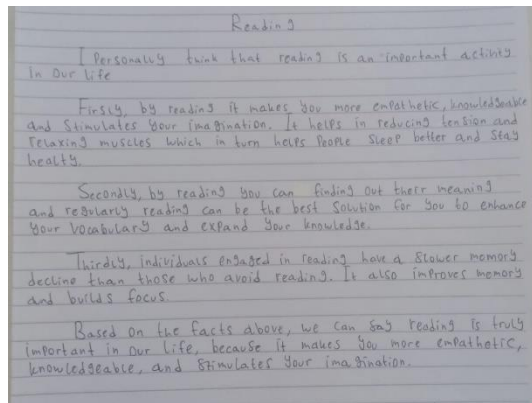 Reading
I Personally think that reading is an important activity
in our life
Firsly, by reading it makes you more empathetic, knowledgeable
and Stimulates your imagination. It helps in reducing tension and
relaxing muscles which in turn helps People sleep better and stay
healty.
Secondly, by reading you can finding out their meaning
and regularly reading can be the best solution for you to enhance
your vocabulary and expand your knowledge.
Thirdly, individuals engaged in reading have a slower memory
decline than those who avoid reading. It also improves memory
and builds focus.
Based on the facts above, we can say reading is truly
important in our life, because it makes you more empathetic,
knowledgeable, and stimulates your imagination.